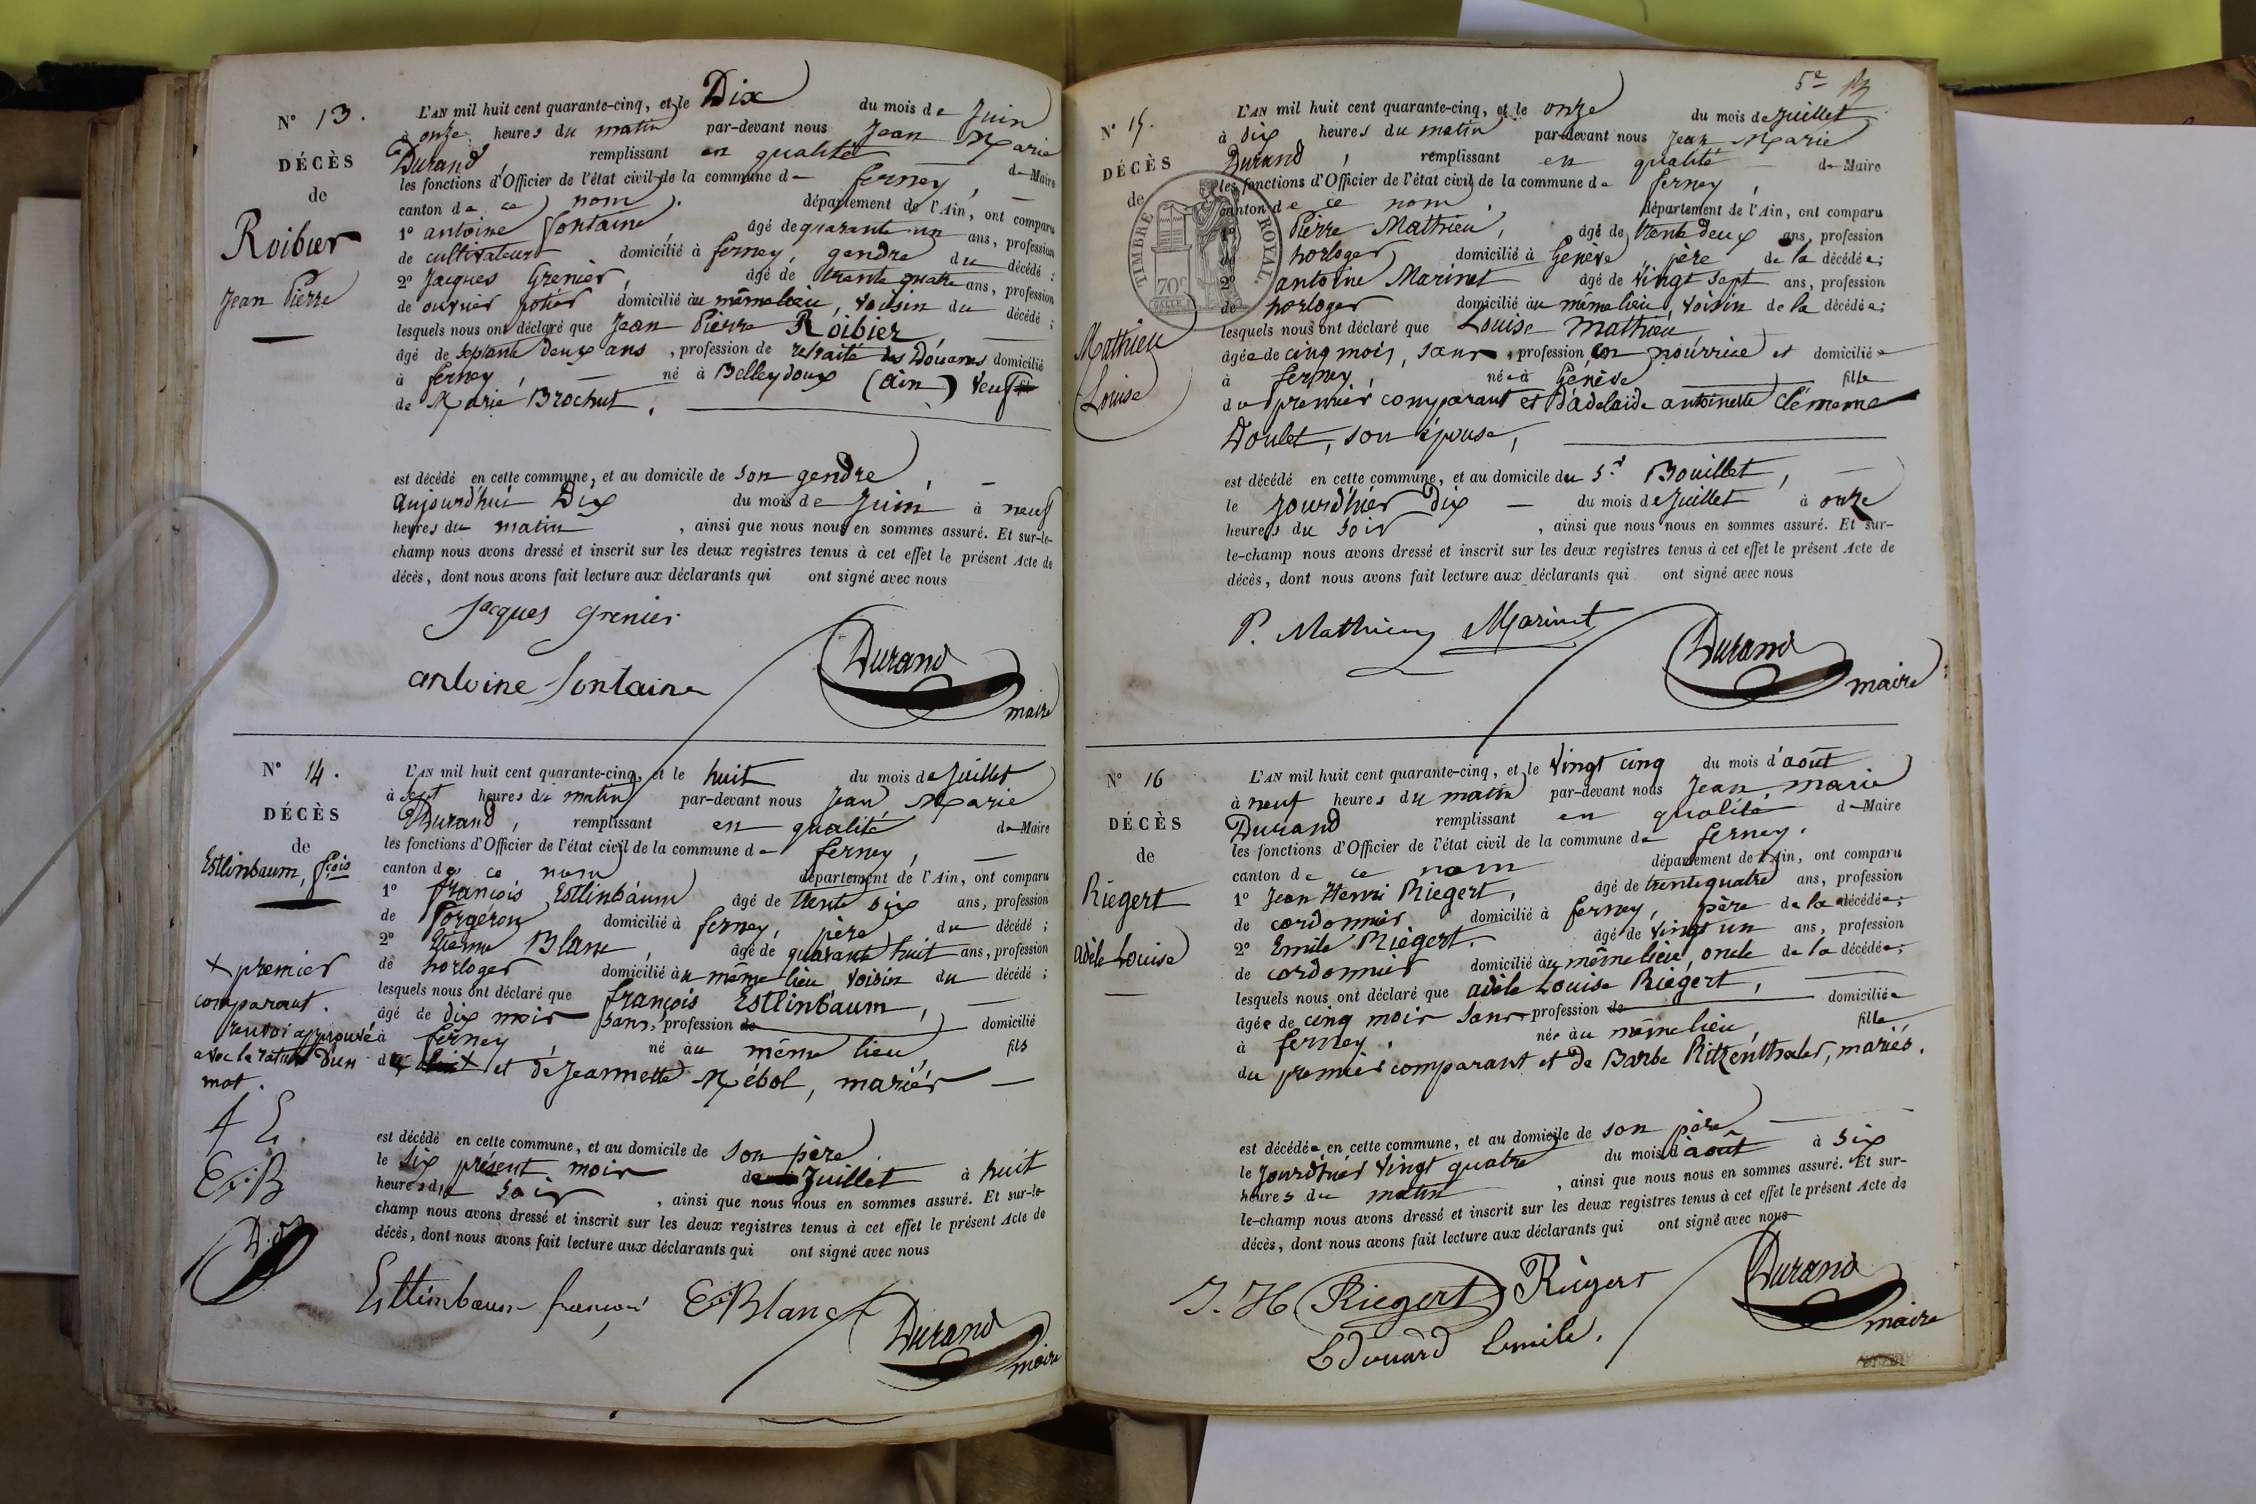 N° 13.
DÉCÈS
de
Roibier
Jean Pierre
L'AN mil huit cent quarante-cinq, et le Dix du mois de Juin
à onze heures du matin par-devant nous Jean Marie
Durand, remplissant en qualité de Maire
les fonctions d'Officier de l'état civil de la commune de ferney,
canton de ce nom. département de l'Ain, ont comparu
1° antoine fontaine, âgé de quarante un ans, profession
de cultivateur domicilié à ferney, gendre du décédé;
2° Jacques Grenier, âgé de trente quatre ans, profession
de ouvrier potier domicilié au même lieu, voisin du décédé;
lesquels nous ont déclaré que Jean Pierre Roibier
âgé de septante deux ans, profession de retraité des Douanes domicilié
à ferney, né à Belleydoux (ain) veuf
de Marie Brochut.
est décédé en cette commune, et au domicile de son gendre,
aujourd'hui Dix du mois de Juin à neuf
heures du matin, ainsi que nous nous en sommes assuré. Et sur-le-
champ nous avons dressé et inscrit sur les deux registres tenus à cet effet le présent Acte de
décès, dont nous avons fait lecture aux déclarants qui ont signé avec nous
Jacques Grenier
antoine fontaine
Durand
maire
N° 14.
DÉCÈS
de
Estlinbaum, fçois
+ premier
comparant.
renvoi approuvé
avec la rature d'un
mot.
E.B
L'AN mil huit cent quarante-cinq, et le huit du mois de Juillet
à sept heures du matin par-devant nous Jean Marie
Durand, remplissant en qualité de Maire
les fonctions d'Officier de l'état civil de la commune de ferney,
canton de ce nom département de l'Ain, ont comparu
1° françois Estlinbaum âgé de trente six ans, profession
de forgeron domicilié à ferney, père du décédé;
2° Etienne Blanc, âgé de quarante huit ans, profession
de horloger domicilié au même lieu voisin du décédé;
lesquels nous ont déclaré que françois Estlinbaum,
âgé de dix mois sans, profession de domicilié
à ferney, né au même lieu, fils
du + et de Jeannette Mébol, mariés
est décédé en cette commune, et au domicile de son père
le six présent mois de Juillet à huit
heures du soir, ainsi que nous nous en sommes assuré. Et sur-le-
champ nous avons dressé et inscrit sur les deux registres tenus à cet effet le présent Acte de
décès, dont nous avons fait lecture aux déclarants qui ont signé avec nous
Estlinbaum françois E. Blanc
Durand
maire
5e
N° 15.
DÉCÈS
de
Mathieu
Louise
TIMBRE ROYAL.
70c
L'AN mil huit cent quarante-cinq, et le onze du mois de Juillet
à dix heures du matin par-devant nous Jean Marie
Durand, remplissant en qualité de Maire
les fonctions d'Officier de l'état civil de la commune de ferney,
canton de ce nom, département de l'Ain, ont comparu
1° Pierre Mathieu, âgé de trente deux ans, profession
de horloger domicilié à Genève, père de la décédée;
2° antoine Marinet âgé de vingt sept ans, profession
de horloger domicilié au même lieu, voisin de la décédée;
lesquels nous ont déclaré que Louise Mathieu
âgée de cinq mois, sans, profession, en nourrice et domiciliée
à ferney, née à Génève fille
du premier comparant et d'adelaide antoinette Clémence
Doulet, son épouse,
est décédé en cette commune, et au domicile du Sr Bouillet,
le jourd'hier Dix du mois de Juillet à onze
heures du soir, ainsi que nous nous en sommes assuré. Et sur-
le-champ nous avons dressé et inscrit sur les deux registres tenus à cet effet le présent Acte de
décès, dont nous avons fait lecture aux déclarants qui ont signé avec nous
P. Mathieu Marinet
Durand
maire
N° 16
DÉCÈS
de
Riegert
adèle Louise
L'AN mil huit cent quarante-cinq, et le vingt cinq du mois d'août
à neuf heures du matin par-devant nous Jean marie
Durand remplissant en qualité de Maire
les fonctions d'Officier de l'état civil de la commune de ferney.
canton de ce nom département de l'Ain, ont comparu
1° Jean Henri Riegert, âgé de trente quatre ans, profession
de cordonnier domicilié à ferney, père de la décédée;
2° Emile Riegert. âgé de vingt un ans, profession
de cordonnier domicilié au même lieu, oncle de la décédée;
lesquels nous ont déclaré que adèle Louise Riegert,
âgée de cinq mois sans profession de domiciliée
à ferney, née au même lieu, fille
du premier comparant et de Barbe Ritzenthaler, mariés.
est décédée en cette commune, et au domicile de son père
le jourd'hier vingt quatre du mois d'août à six
heures du matin, ainsi que nous nous en sommes assuré. Et sur-
le-champ nous avons dressé et inscrit sur les deux registres tenus à cet effet le présent Acte de
décès, dont nous avons fait lecture aux déclarants qui ont signé avec nous
J. H Riegert Riegert
Edouard Emile.
Durand
maire